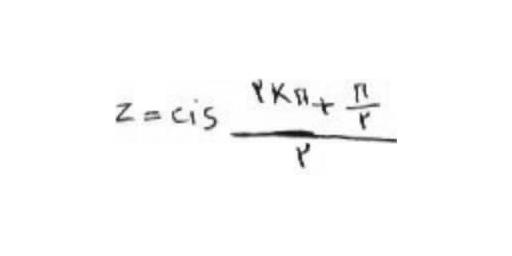 z = cis (۲Kπ + π/۲)/۲